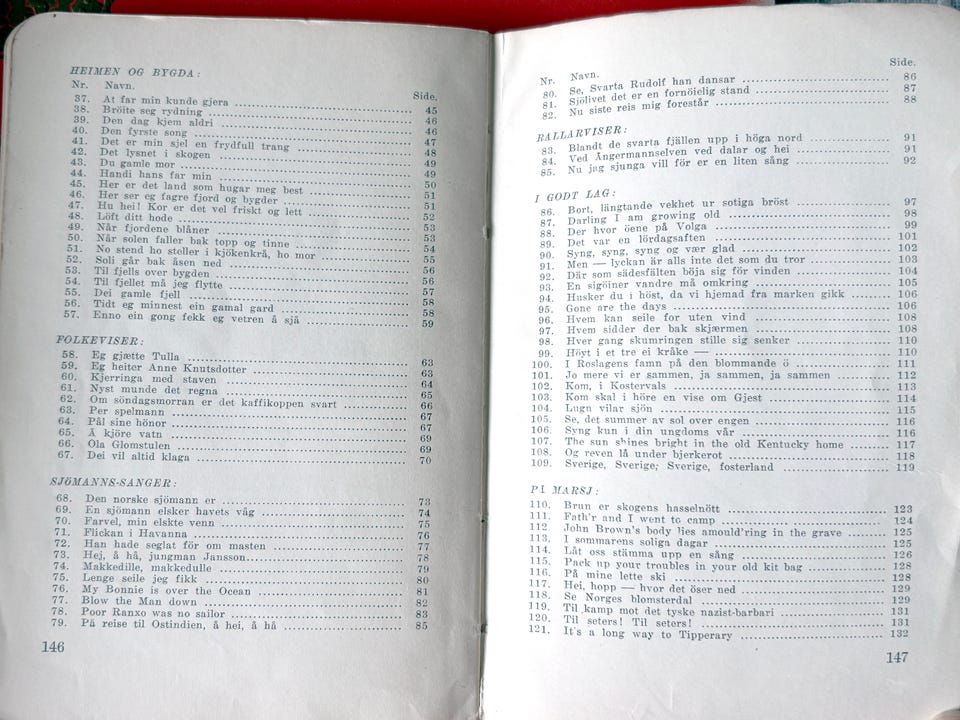 HEIMEN OG BYGDA:
Nr. Navn. Side.
37. At far min kunde gjera 45
38. Bröite seg rydning 46
39. Den dag kjem aldri 46
40. Den fyrste song 47
41. Det er min sjel en frydfull trang 48
42. Det lysnet i skogen 49
43. Du gamle mor 49
44. Handi hans far min 50
45. Her er det land som hugar meg best 51
46. Her ser eg fagre fjord og bygder 51
47. Hu hei! Kor er det vel friskt og lett 52
48. Löft ditt hode 53
49. Når fjordene blåner 53
50. Når solen faller bak topp og tinne 54
51. No stend ho steller i kjökenkrå, ho mor 55
52. Soli går bak åsen ned 56
53. Til fjells over bygden 56
54. Til fjellet må jeg flytte 57
55. Dei gamle fjell 58
56. Tidt eg minnest ein gamal gard 58
57. Enno ein gong fekk eg vetren å sjå 59
FOLKEVISER:
58. Eg gjætte Tulla 63
59. Eg heiter Anne Knutsdotter 63
60. Kjerringa med staven 64
61. Nyst munde det regna 65
62. Om söndagsmorran er det kaffikoppen svart 66
63. Per spelmann 67
64. Pål sine hönor 67
65. Å kjöre vatn 69
66. Ola Glomstulen 69
67. Dei vil altid klaga 70
SJÖMANNS-SANGER:
68. Den norske sjömann er 73
69. En sjömann elsker havets våg 74
70. Farvel, min elskte venn 75
71. Flickan i Havanna 76
72. Han hade seglat för om masten 77
73. Hej, å hå, jungman Jansson 78
74. Makkedille, makkedulle 79
75. Lenge seile jeg fikk 80
76. My Bonnie is over the Ocean 81
77. Blow the Man down 82
78. Poor Ranxo was no sailor 83
79. På reise til Ostindien, å hei, å hå 85
146
Nr. Navn. Side.
80. Se, Svarta Rudolf han dansar 86
81. Sjölivet det er en fornöielig stand 87
82. Nu siste reis mig forestår 88
RALLARVISER:
83. Blandt de svarta fjällen upp i höga nord 91
84. Ved Ångermannselven ved dalar og hei 91
85. Nu jag sjunga vill för er en liten sång 92
I GODT LAG:
86. Bort, längtande vekhet ur sotiga bröst 97
87. Darling I am growing old 98
88. Der hvor öene på Volga 99
89. Det var en lördagsaften 101
90. Syng, syng, syng og vær glad 102
91. Men — lyckan är alls inte det som du tror 103
92. Där som sädesfälten böja sig för vinden 104
93. En sigöiner vandre må omkring 105
94. Husker du i höst, da vi hjemad fra marken gikk 106
95. Gone are the days 106
96. Hvem kan seile for uten vind 108
97. Hvem sidder der bak skjærmen 108
98. Hver gang skumringen stille sig senker 110
99. Höyt i et tre ei kråke — 110
100. I Roslagens famn på den blommande ö 111
101. Jo mere vi er sammen, ja sammen, ja sammen 112
102. Kom, i Kostervals 113
103. Kom skal i höre en vise om Gjest 114
104. Lugn vilar sjön 115
105. Se, det summer av sol over engen 116
106. Syng kun i din ungdoms vår 116
107. The sun shines bright in the old Kentucky home 117
108. Og reven lå under bjerkerot 118
109. Sverige, Sverige, Sverige, fosterland 119
PÅ MARSJ:
110. Brun er skogens hasselnött 123
111. Fath'r and I went to camp 124
112. John Brown's body lies amould'ring in the grave 125
113. I sommarens soliga dagar 125
114. Låt oss stämma upp en sång 126
115. Pack up your troubles in your old kit bag 128
116. På mine lette ski 128
117. Hei, hopp — hvor det öser ned 129
118. Se Norges blomsterdal 129
119. Til kamp mot det tyske nazist-barbari 131
120. Til seters! Til seters! 131
121. It's a long way to Tipperary 132
147